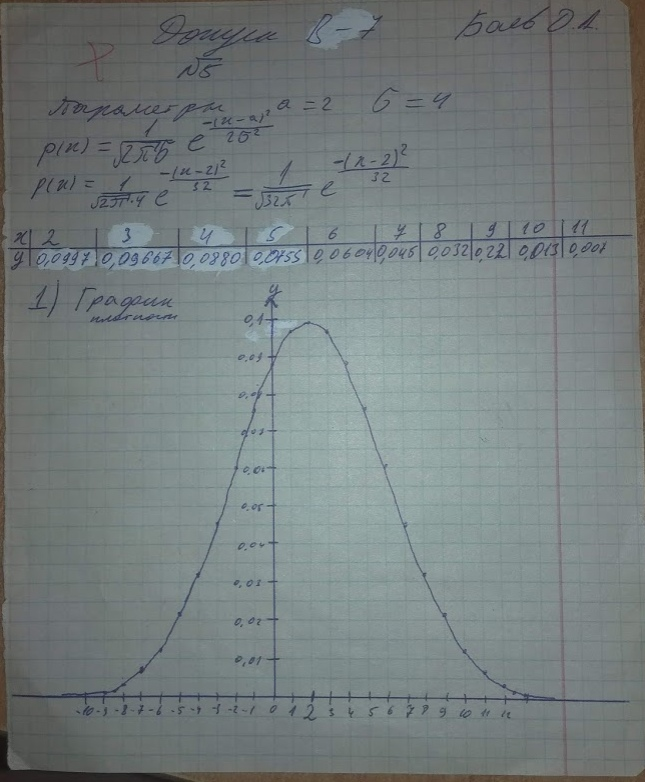 Допуск В-7 Баев О.А.
№5
Параметры a = 2 σ = 4
p(x) = 1/√2π σ e^-(x-a)²/2σ²
p(x) = 1/√2π·4 e^-(x-2)²/32 = 1/√32π e^-(x-2)²/32
x 2 3 4 5 6 7 8 9 10 11
y 0,0997 0,09667 0,0880 0,0755 0,0604 0,045 0,032 0,22 0,013 0,007
1) График
плотности
y
0,1
0,09
0,05
0,04
0,03
0,02
0,01
-10 -9 -8 -7 -6 -5 -4 -3 -2 -1 0 1 2 3 4 5 6 7 8 9 10 11 12